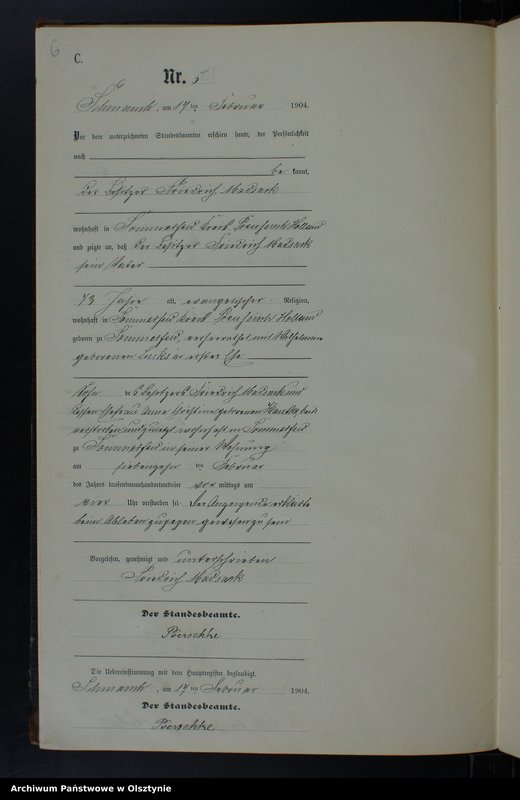 6
C.
Nr. 5
Schmauch, am 17ten Februar 1904.
Vor dem unterzeichneten Standesbeamten erschien heute, der Persönlichkeit
nach
be kannt,
der Besitzer Friedrich Madsack
wohnhaft in Sommerfeld Kreis Preußisch Holland
und zeigte an, daß der Besitzer Friedrich Madsack
sein Vater
73 Jahre alt, evangelischer Religion,
wohnhaft in Sommerfeld Kreis Preußisch Holland
geboren zu Sommerfeld, verheirathet mit Wilhelmine
geborenen in erster Ehe
Sohn des Besitzers Friedrich Madsack und
dessen Ehefrau Anna Christine geborenen beide
verstorben und zuletzt wohnhaft in Sommerfeld
zu Sommerfeld in seiner Wohnung
am siebenzehn ten Februar
des Jahres tausendneunhundertundvier vor mittags um
Uhr verstorben sei. Der Anzeigende erklärte
beim Ableben zugegen gewesen zu sein
Vorgelesen, genehmigt und unterschrieben
Friedrich Madsack
Der Standesbeamte.
Poerschke
Die Uebereinstimmung mit dem Hauptregister beglaubigt.
Schmauch, am 17ten Februar 1904.
Der Standesbeamte.
Poerschke
Archiwum Państwowe w Olsztynie